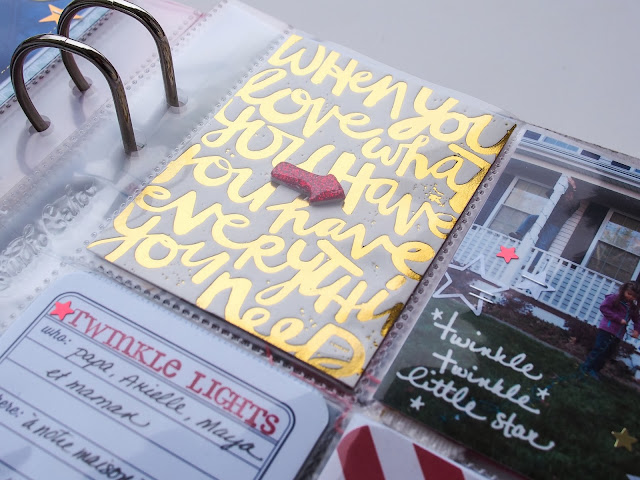 WHEN YOU
love what
you HAVE
you have
everyTHI
you NEED
TWINKLE LIGHTS
who: papa, Arielle, Maya
et maman
here: à notre maison
twinkle
twinkle
little star